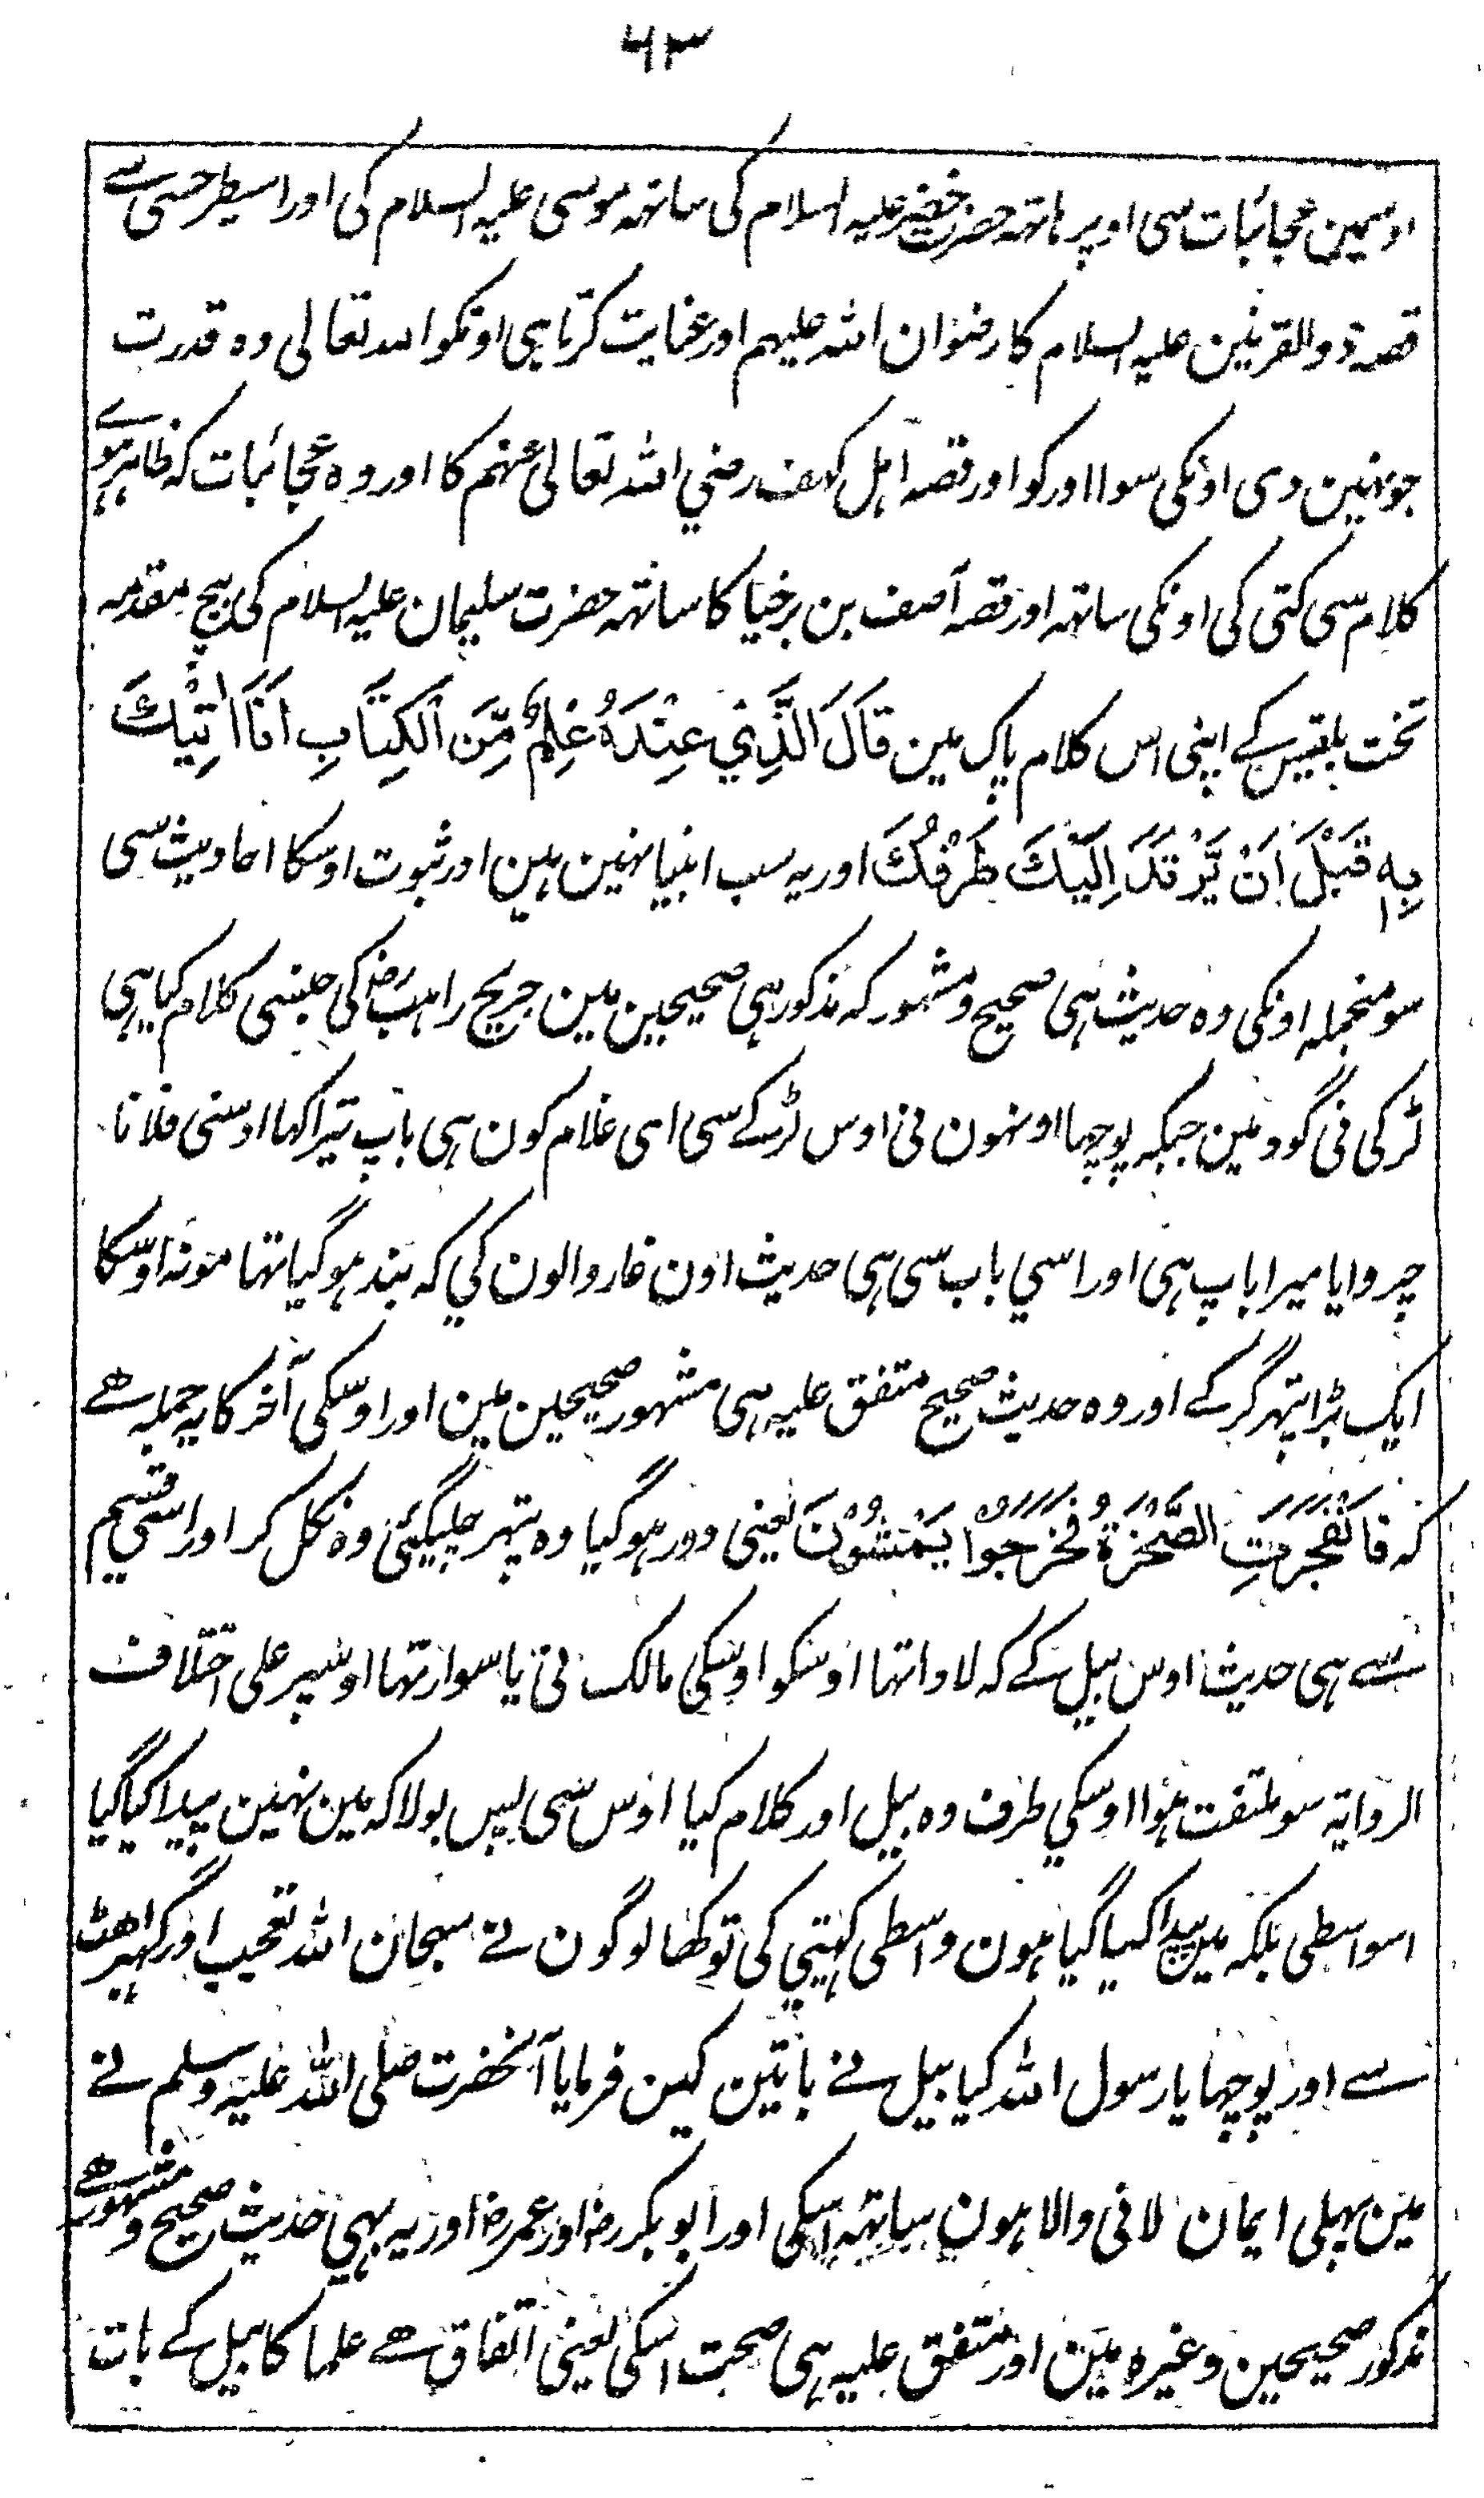 ۶۳
اوسمین عجائبات سی اوپر ہاتہہ حضرت خضر علیہ السلام کی ساتہہ موسی علیہ السلام کی اور اسیطرحسی ہے
قصہ ذوالقرنین علیہ السلام کا رضوان اللہ علیہم اور عنایت کرتا ہی اونکو اللہ تعالی وہ قدرت
جو نہین دی اونکی سوا اور کو اور قصہ اہل کہف رضي اللہ تعالی عنہم کا اور وہ عجائبات کہ ظاہر ہوے
کلام سی کتی کی اونکی ساتہہ اور قصہ آصف بن برخیا کا ساتہہ حضرت سلیمان علیہ السلام کی بیچ مقدمہ
تخت بلقیس کے اپنی اس کلام پاک مین قَالَ الَّذِي عِنْدَهُ عِلْمٌ مِّنَ الْكِتَابِ اَنَا اٰتِيْكَ
بِهٖ قَبْلَ اَنْ يَّرْتَدَّ اِلَيْكَ طَرْفُكَ اور یہ سب انبیا نہین ہین اور ثبوت اوسکا احادیث سی
سو منجملہ اونکی وہ حدیث ہی صحیح و مشہور کہ مذکور ہی صحیحین مین جریح راہب رض کی جنسی کلام کیا ہی
لڑکی نی گود مین جبکہ پوچہا اونہون نی اوس لڑکے سی ای غلام کون ہی باپ تیرا کہا اوسنی فلانا
چروایا میرا باپ ہی اور اسي باب سی ہی حدیث اون غار والون کي کہ بند ہو گیا تہا مونہ اوسکا
ایک بڑا پتہر گر کے اور وہ حدیث صحیح متفق علیہ ہی مشہور صحیحین مین اور اوسکی آخر کا یہ جملہ ھے
کہ فَانْفَجَرَتِ الصَّخْرَةُ فَخَرَجُوْا يَمْشُوْنَ یعنی دور ہو گیا وہ پتہر چلیگئی وہ نکل کر اور اسی قسم
سے ہی حدیث اوس بیل کے کہ لادا تہا اوسکو اوسکی مالک نی یا سوار تہا اوسپر علی اختلاف
الروایۃ سو ملتفت ہوا اوسکي طرف وہ بیل اور کلام کیا اوس سی پس بولا کہ مین نہین پیدا کیا گیا
اسواسطی بلکہ مین پیدا کیا گیا ہون واسطی کہیتي کی تو کہا لوگون نے سبحان اللہ تعجب اور گہبراھٹ
سے اور پوچہا یا رسول اللہ کیا بیل نے باتین کین فرمایا آنحضرت صلی اللہ علیہ وسلم نے
مین پہلی ایمان لانی والا ہون ساتہہ اسکی اور ابو بکر رض اور عمر رض اور یہ بہی حدیث صحیح و مشہور ھے
مذکور صحیحین وغیرہ مین اور متفق علیہ ہی صحت اسکی یعنی اتفاق ھے علما کا بیل کے بات